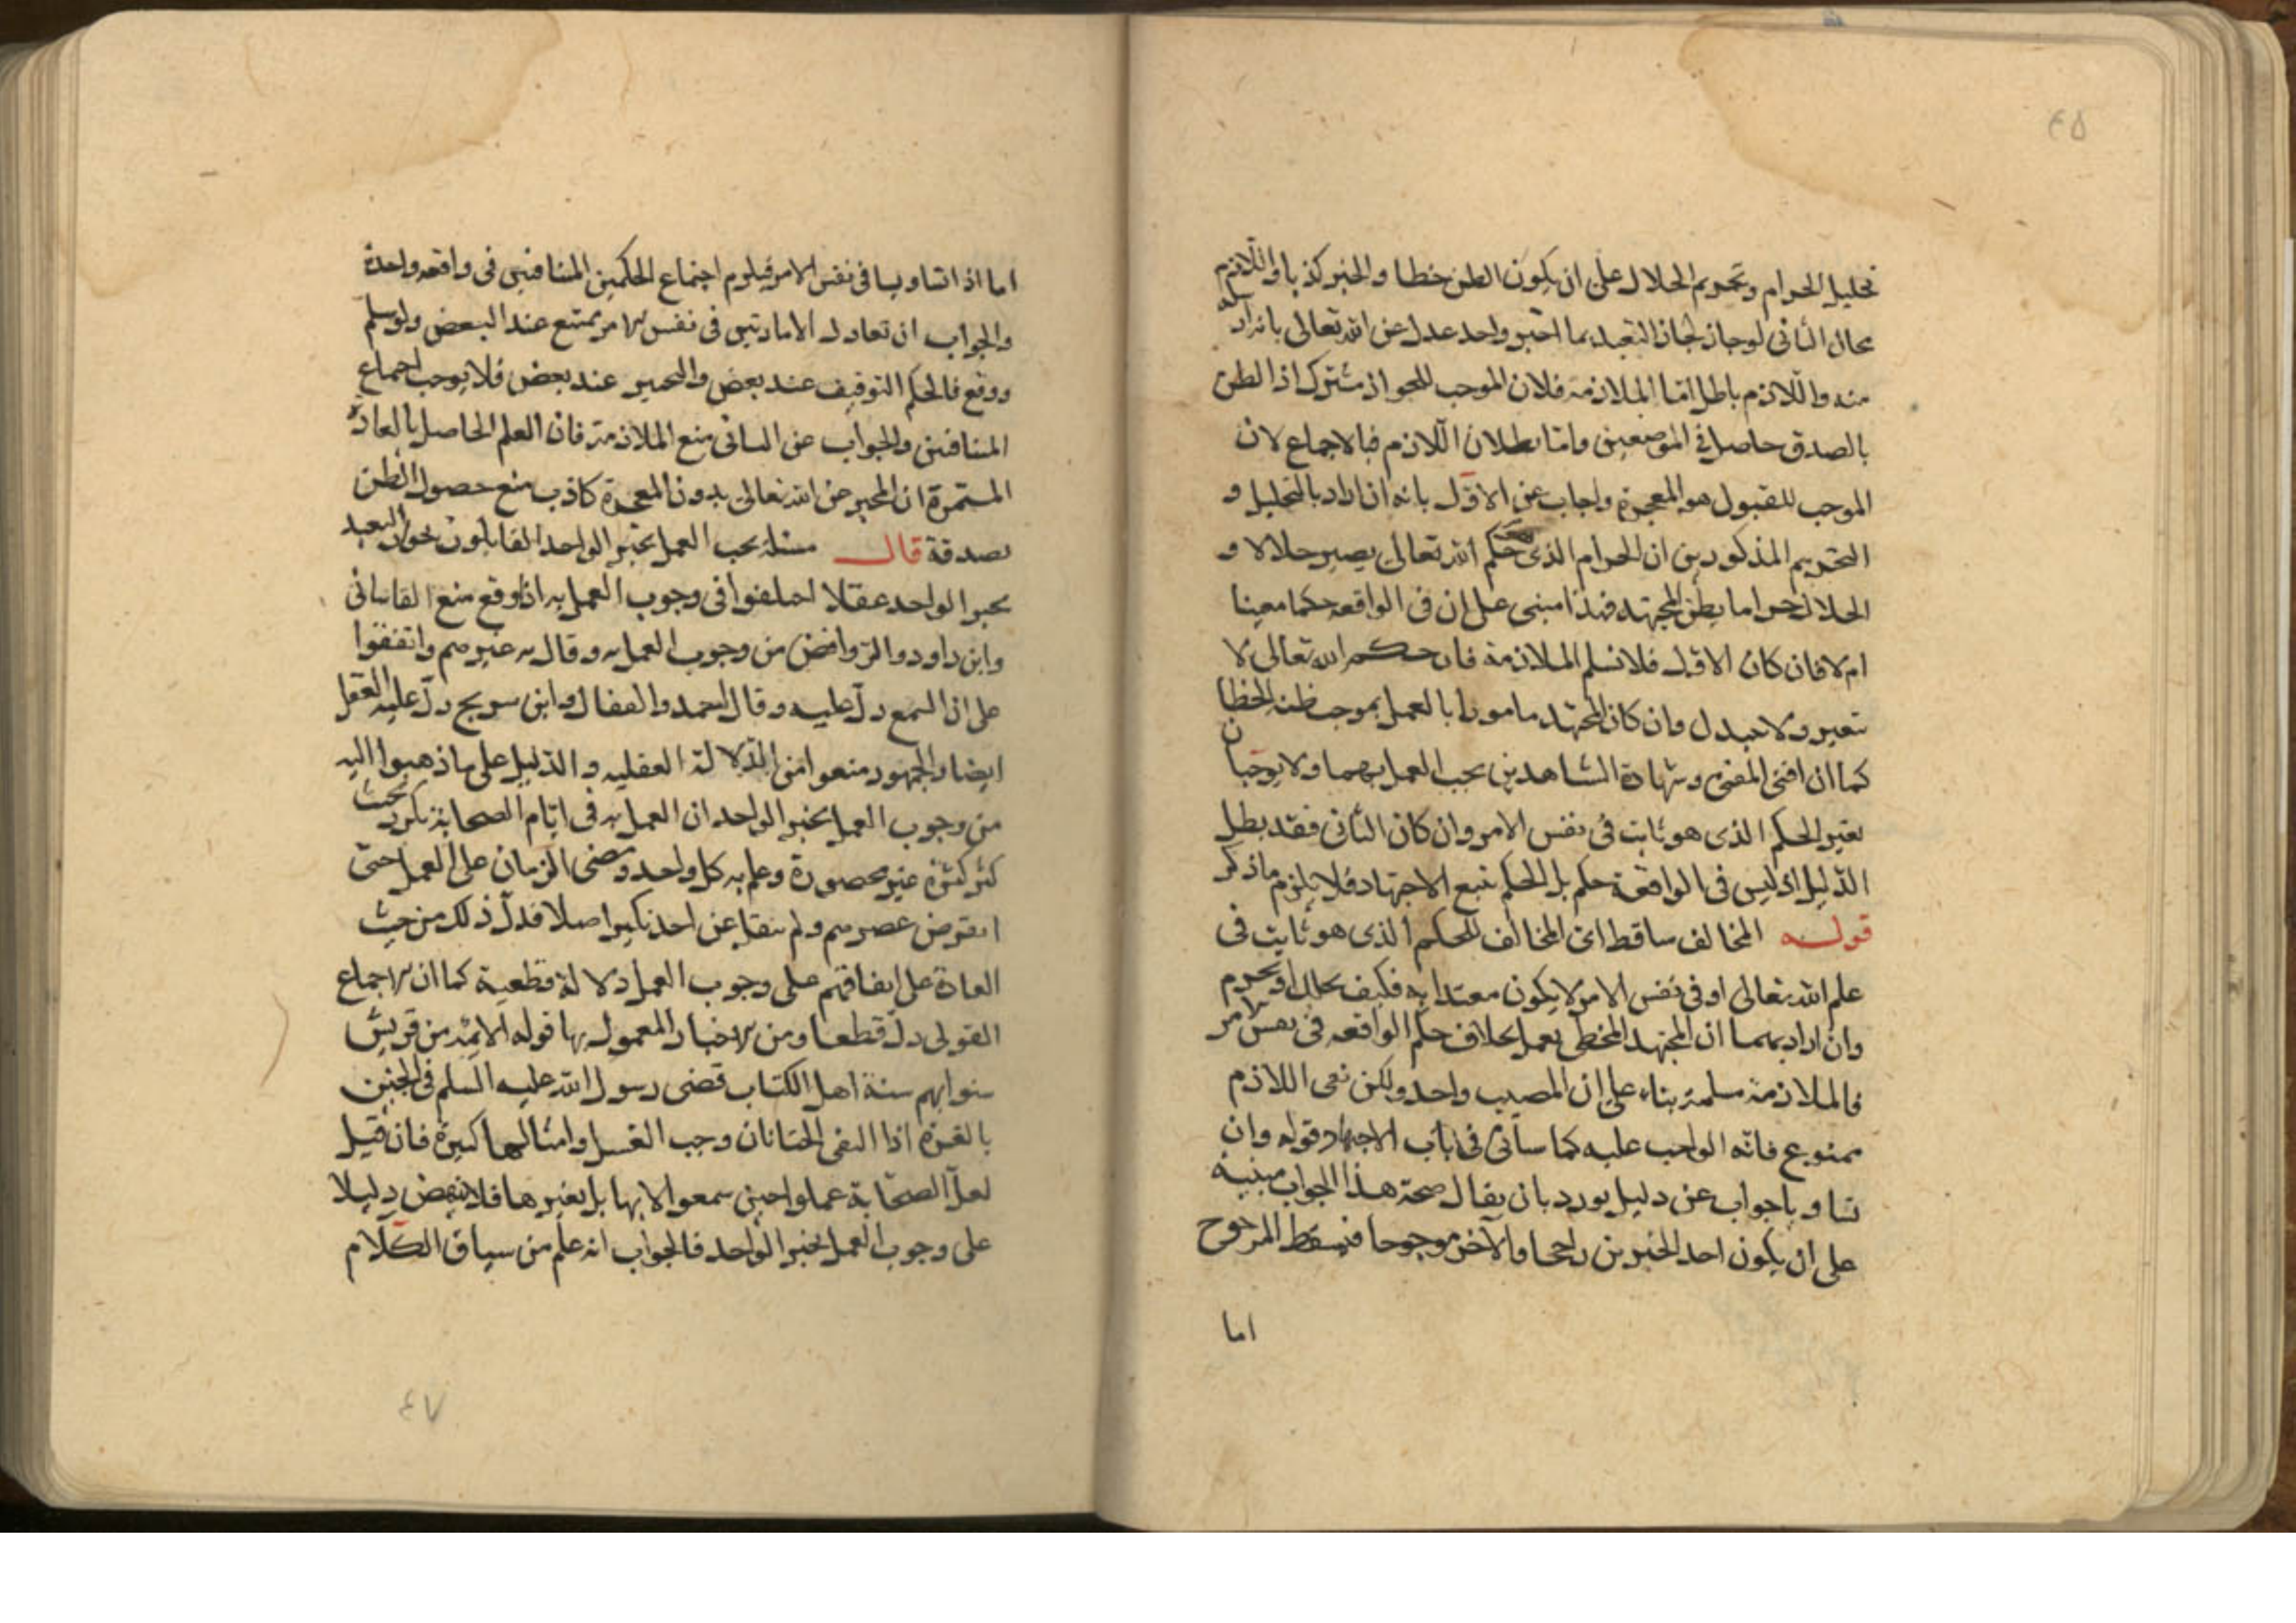 ٤٥
تحليل الحرام وتحريم الحلال على ان يكون الظن خطا والخبر كذبا واللازم
محال الثانى لو جاز لجاز التعبد بما اخبر واحد عدل عن الله تعالى بانه
منه واللازم باطل اما الملازمة فلان الموجب للجواز مشترك اذ الظن
بالصدق حاصل فى الموضعين واما بطلان اللازم فبالاجماع لان
الموجب للقبول هو المعجزة واجاب عن الاول بانه ان اراد بالتحليل و
التحريم المذكورين ان الحرام الذى حكم الله تعالى يصير حلالا و
الحلال حراما بظن المجتهد فهذا مبنى على ان فى الواقعه حكما معينا
ام لا فان كان الاول فلا نسلم الملازمة فان حكم الله تعالى لا
تغير ولا تبدل وان كان المجتهد مامورا بالعمل بموجب ظنه الخطا
كما ان افتى المفتى وشهادة الشاهدين يجب العمل بهما ولا يوجبان
تغير الحكم الذى هو ثابت فى نفس الامر وان كان الثانى فقد بطل
الدليل اذ ليس فى الواقعة حكم بل الحكم تبع الاجتهاد فلا يلزم ما ذكر
قوله المخالف ساقط اى المخالف للحكم الذى هو ثابت فى
علم الله تعالى او فى نفس الامر لا يكون معتدا به فكيف يحلل او يحرم
وان اراد بهما ان المجتهد المخطى يعمل بخلاف حكم الواقعه فى نفس الامر
فالملازمة مسلمة بناء على ان المصيب واحد ولكن نفى اللازم
ممنوع فانه الواجب عليه كما سياتى فى باب الاجتهاد قوله وان
تساويا جواب عن دليل يورد بان يقال صحة هذا الجواب مبنية
على ان يكون احد الخبرين راجحا والآخر مرجوحا فيسقط المرجوح
اما
اما اذا تساويا فى نفس الامر فيلزم اجتماع الحكمين المتنافيين فى واقعه واحدة
والجواب ان تعادل الامارتين فى نفس الامر ممتنع عند البعض ولو سلم
ووقع فالحكم التوقيف عند بعض والتخيير عند بعض فلا يوجب اجماع
المتنافيين والجواب عن الثانى منع الملازمة فان العلم الحاصل بالعادة
المستمرة ان المخبر عن الله تعالى بدون المعجزة كاذب منع حصول الظن
بصدقة قال مسئلة يجب العمل بخبر الواحد القايلون بجواز التعبد
بخبر الواحد عقلا اختلفوا فى وجوب العمل به اذا وقع منع القاسانى
وابن داود والروافض من وجوب العمل به وقال به غيرهم واتفقوا
على ان السمع دل عليه وقال احمد والقفال وابن سريج دل عليه العقل
ايضا والجمهور منعوا من الدلالة العقليه والدليل على ما ذهبوا اليه
من وجوب العمل بخبر الواحد ان العمل به فى ايام الصحابة تكرر بحيث
كثر كثرة غير محصورة وعلم به كل واحد ومضى الزمان على العمل حتى
انقرض عصرهم ولم ينقل عن احد نكيرا اصلا فدل ذلك من حيث
العادة على اتفاقهم على وجوب العمل دلالة قطعية كما ان الاجماع
القولى دل قطعا ومن الاخبار المعمول بها قوله الائمة من قريش
سنوا بهم سنة اهل الكتاب قضى رسول الله عليه السلم فى الجنين
بالغرة اذا التقى الختانان وجب الغسل وامثالها كثيرة فان قيل
لعل الصحابة عملوا حين سمعوا لا بها بل بغيرها فلا ينهض دليلا
على وجوب العمل بخبر الواحد فالجواب انه علم من سياق الكلام
٤٧